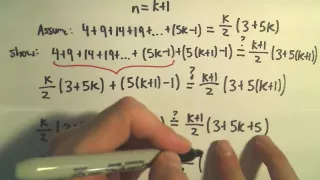 n=k+1
Assume: 4+9+14+19+...+(5k-1) = k/2 (3+5k)
Show: 4+9+14+19+...+(5k-1)+(5(k+1)-1) ?= k+1/2 (3+5(k+1))
k/2 (3+5k) + (5(k+1)-1) ?= k+1/2 (3+5(k+1))
k/2 ?= k+1/2 (3+5k+5)